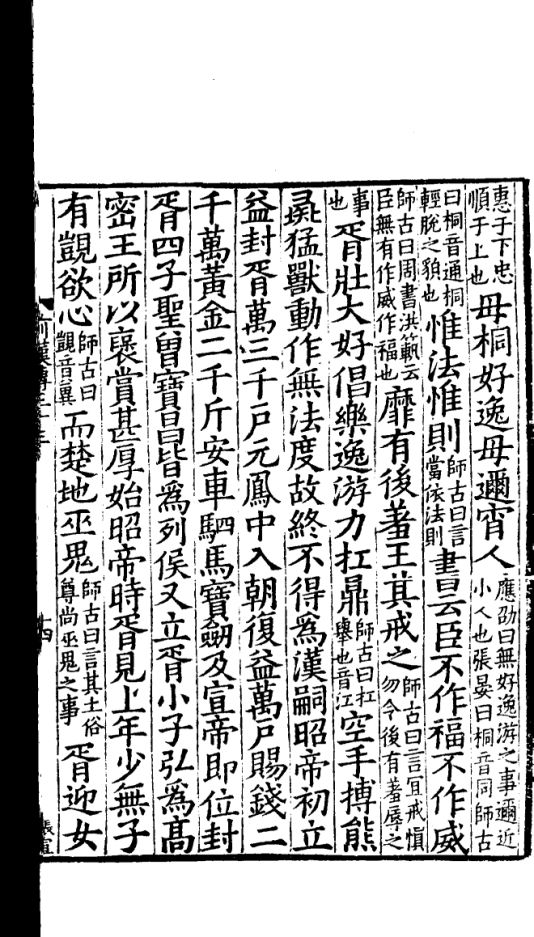 惠于下忠順于上也毋桐好逸毋邇宵人應劭曰無好逸游之事邇近小人也張晏曰桐音同師古
曰桐音通桐輕脫之貌也惟法惟則師古曰言當依法則書云臣不作福不作威
師古曰周書洪範云臣無有作威作福也靡有後羞王其戒之師古曰言宜戒慎勿令後有羞辱之
事也胥壯大好倡樂逸游力扛鼎師古曰扛舉也音江空手搏熊
彘猛獸動作無法度故終不得爲漢嗣昭帝初立
益封胥萬三千户元鳳中入朝復益萬户賜錢二
千萬黃金二千斤安車駟馬寶劒及宣帝即位封
胥四子聖曾寶昌皆爲列侯又立胥小子弘爲高
密王所以襃賞甚厚始昭帝時胥見上年少無子
有覬欲心師古曰覬音冀而楚地巫鬼師古曰言其土俗尊尚巫鬼之事胥迎女
前漢傳三十三
十四